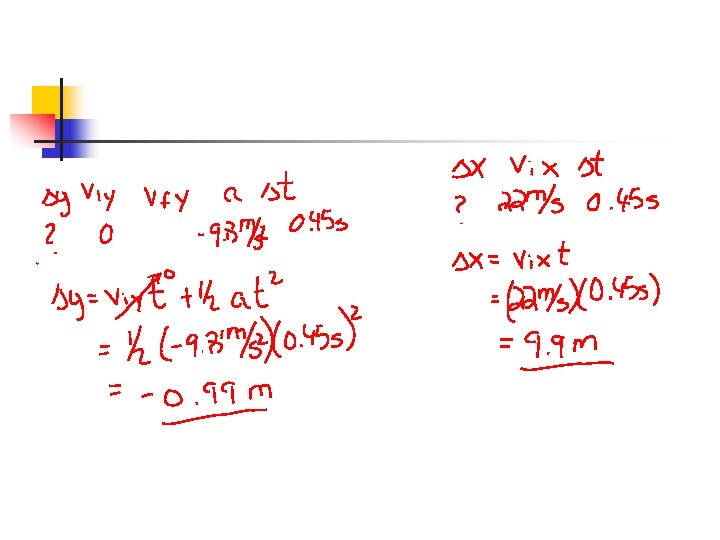 Δy Viy Vfy a Δt
? 0 -9.8m/s² 0.45s
Δy = Viyt⁰ + 1/2 at²
= 1/2 (-9.8m/s²)(0.45s)²
= -0.99 m
Δx Vix Δt
? 22m/s 0.45s
Δx = Vixt
= (22m/s)(0.45s)
= 9.9 m